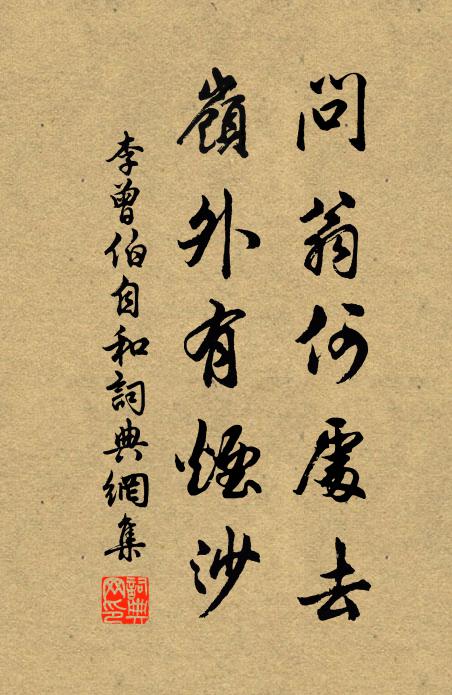 問翁何處去
嶺外有煙沙
李曾伯自和詞典網集
詞典
网印